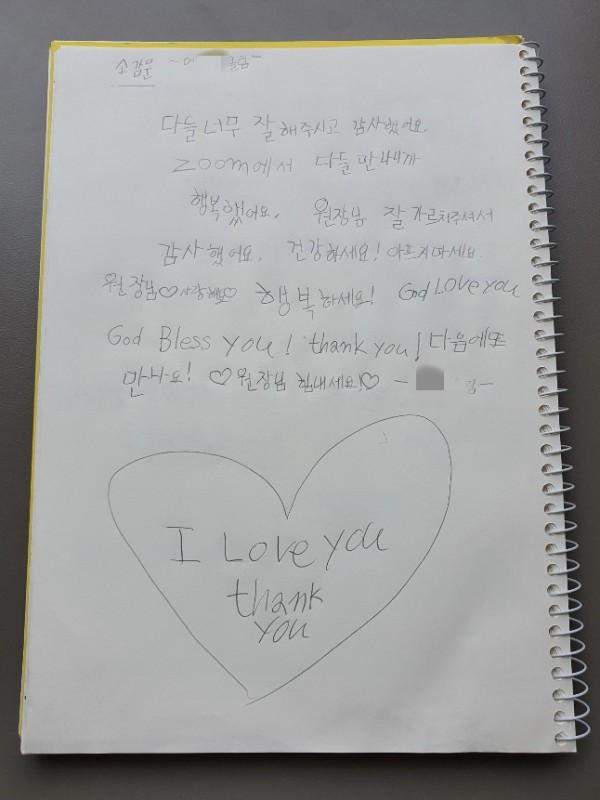 소감문 ~에 올림~
다들 너무 잘 해주시고 감사했어요.
ZOOM에서 다들 만나니까
행복했어요. 원장님 잘 가르쳐주셔서
감사했어요. 건강하세요! 아프지마세요.
원장님♡사랑해요♡ 행복하세요! God LOVE you
God Bless you! thank you! 다음에또
만나요! ♡원장님 힘내세요!♡ - 김-
I Love you
thank
you